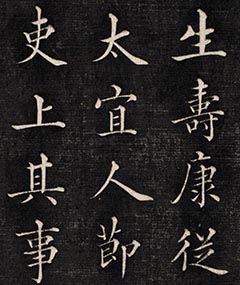 生壽康従
太宜人節
吏上其事